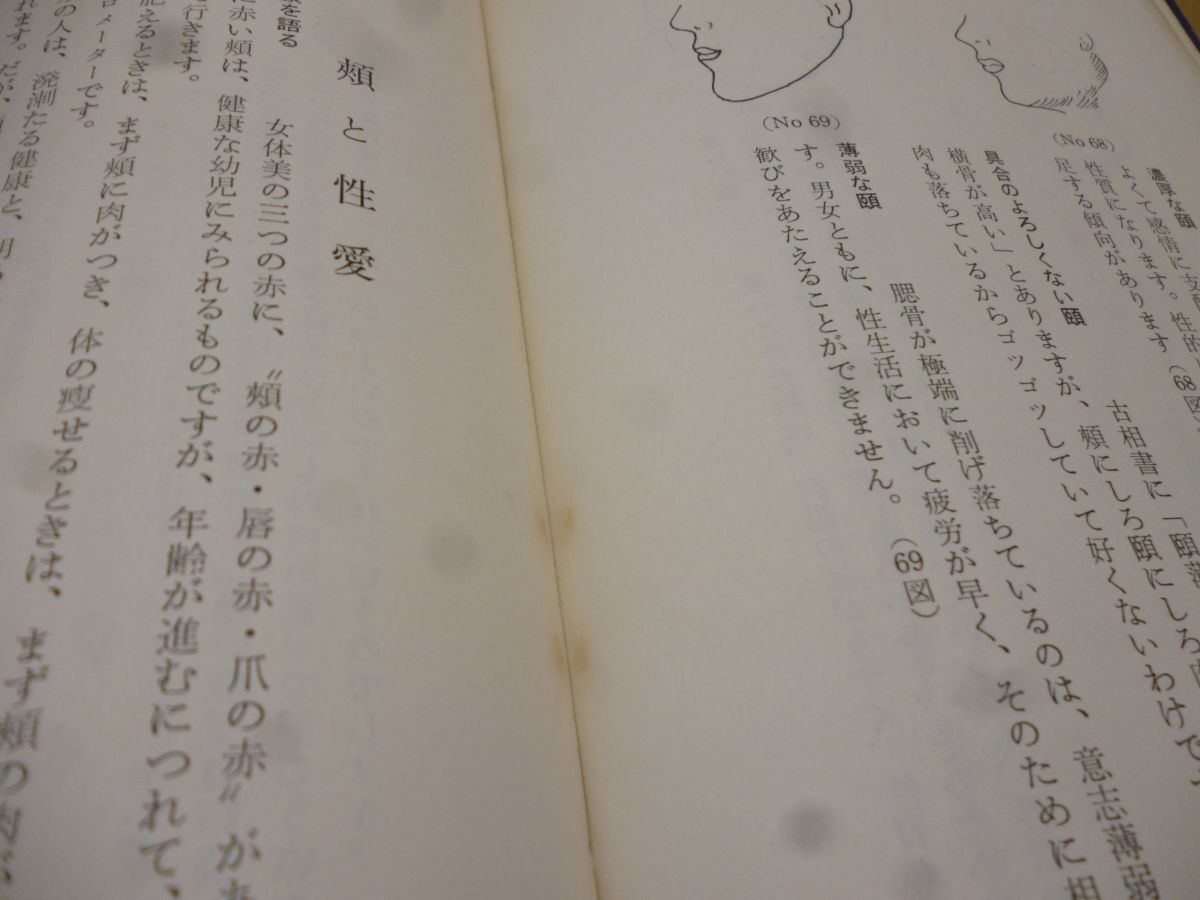 (No 68)
(No 69)
濃厚な頤
よくて感情に支
性質になります。性的
足する傾向があります(68図)
古相書に「頤
具合のよろしくない頤
横骨が高い」とありますが、頰にしろ頤にしろ
肉も落ちているからゴツゴツしていて好くないわけで
薄弱な頤
腮骨が極端に削げ落ちているのは、意志薄弱
す。男女ともに、性生活において疲労が早く、そのために相
歓びをあたえることができません。(69図)
頰と性愛
を語る
女体美の三つの赤に、〝頰の赤・唇の赤・爪の赤〟が
に赤い頰は、健康な幼児にみられるものですが、年齢が進むにつれて、
行きます。
肥えるときは、まず頰に肉がつき、体の瘦せるときは、まず頰の肉が
ロメーターです。
の人は、溌溂たる健康と、明
れます。だが、